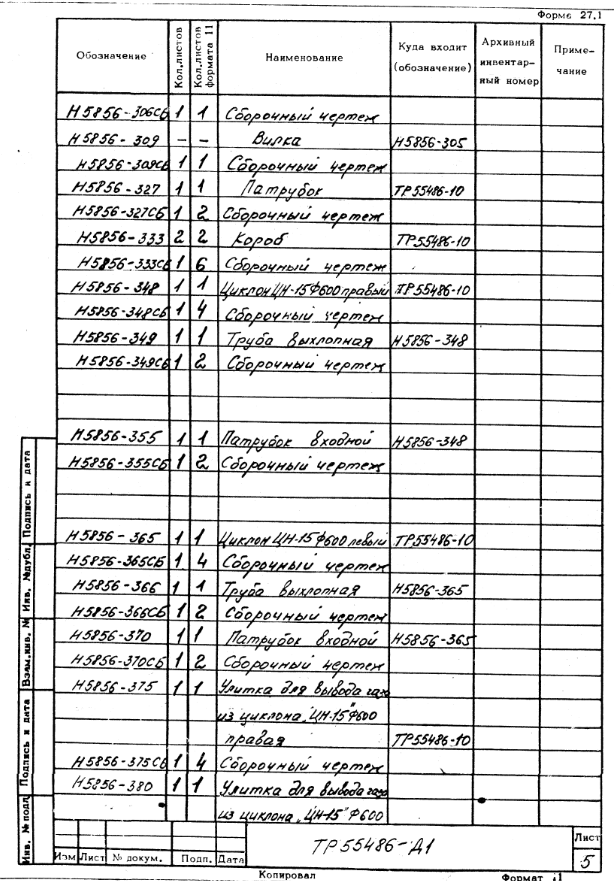 Форма 27.1
Обозначение Кол.листов Кол.листов формата 11 Наименование Куда входит (обозначение) Архивный инвентар-ный номер Приме-чание
Н5856-306СБ 1 1 Сборочный чертеж
Н5856-309 – – Вилка Н5856-305
Н5856-309СБ 1 1 Сборочный чертеж
Н5856-327 1 1 Патрубок ТР55486-10
Н5856-327СБ 1 2 Сборочный чертеж
Н5856-333 2 2 Короб ТР55486-10
Н5856-333СБ 1 6 Сборочный чертеж
Н5856-348 1 1 Циклон ЦН-15 Ф600 правый ТР55486-10
Н5856-348СБ 1 4 Сборочный чертеж
Н5856-349 1 1 Труба выхлопная Н5856-348
Н5856-349СБ 1 2 Сборочный чертеж
Н5856-355 1 1 Патрубок входной Н5856-348
Н5856-355СБ 1 2 Сборочный чертеж
Н5856-365 1 1 Циклон ЦН-15 Ф600 левый ТР55486-10
Н5856-365СБ 1 4 Сборочный чертеж
Н5856-366 1 1 Труба выхлопная Н5856-365
Н5856-366СБ 1 2 Сборочный чертеж
Н5856-370 1 1 Патрубок входной Н5856-365
Н5856-370СБ 1 2 Сборочный чертеж
Н5856-375 1 1 Улитка для вывода газа
из циклона „ЦН-15" Ф600
правая ТР55486-10
Н5856-375СБ 1 4 Сборочный чертеж
Н5856-380 1 1 Улитка для вывода газа
из циклона „ЦН-15" Ф600
Инв. № подл. Подпись и дата Взам.инв. № Инв. №дубл. Подпись и дата
ТР55486-Д1
Лист
5
Изм Лист № докум. Подп. Дата
Копировал Формат 11